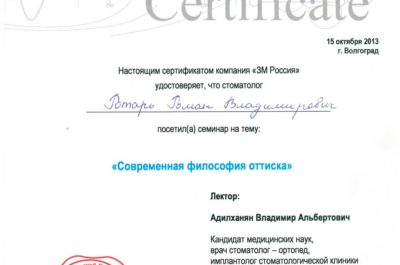 Certificate
15 октября 2013
г. Волгоград
Настоящим сертификатом компания «3М Россия»
удостоверяет, что стоматолог
Ротарь Роман Владимирович
посетил(а) семинар на тему:
«Современная философия оттиска»
Лектор:
Адилханян Владимир Альбертович
Кандидат медицинских наук,
врач стоматолог – ортопед,
имплантолог стоматологической клиники